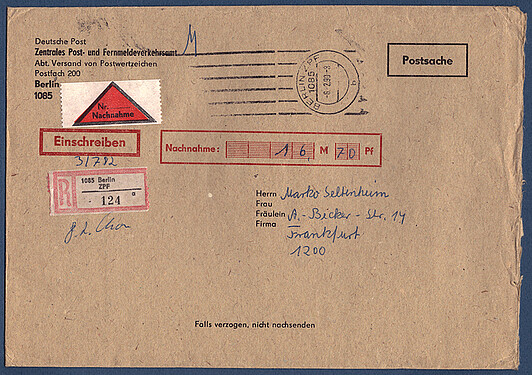 Deutsche Post
Zentrales Post- und Fernmeldeverkehrsamt
Abt. Versand von Postwertzeichen
Postfach 200
Berlin
1085
Postsache
BERLIN ZPF
1085
-8.2.90-8
Nr.
Nachnahme
Einschreiben
31782
Nachnahme: 16, M 70 Pf
R
1085 Berlin
ZPF
a
124
Herrn
Frau
Fräulein
Firma
Marko Seltenheim
A.-Bicker-Str. 14
Frankfurt
1200
Falls verzogen, nicht nachsenden